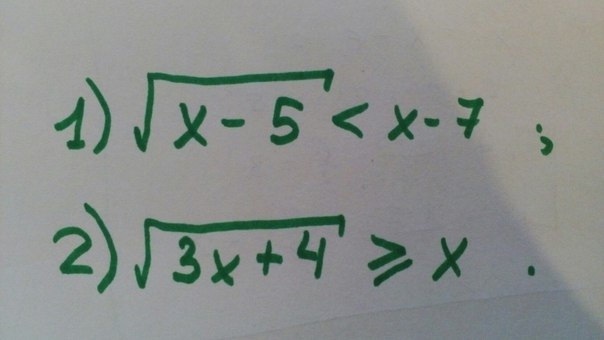 1) √(x-5) < x-7 ;
2) √(3x+4) ⩾ x .